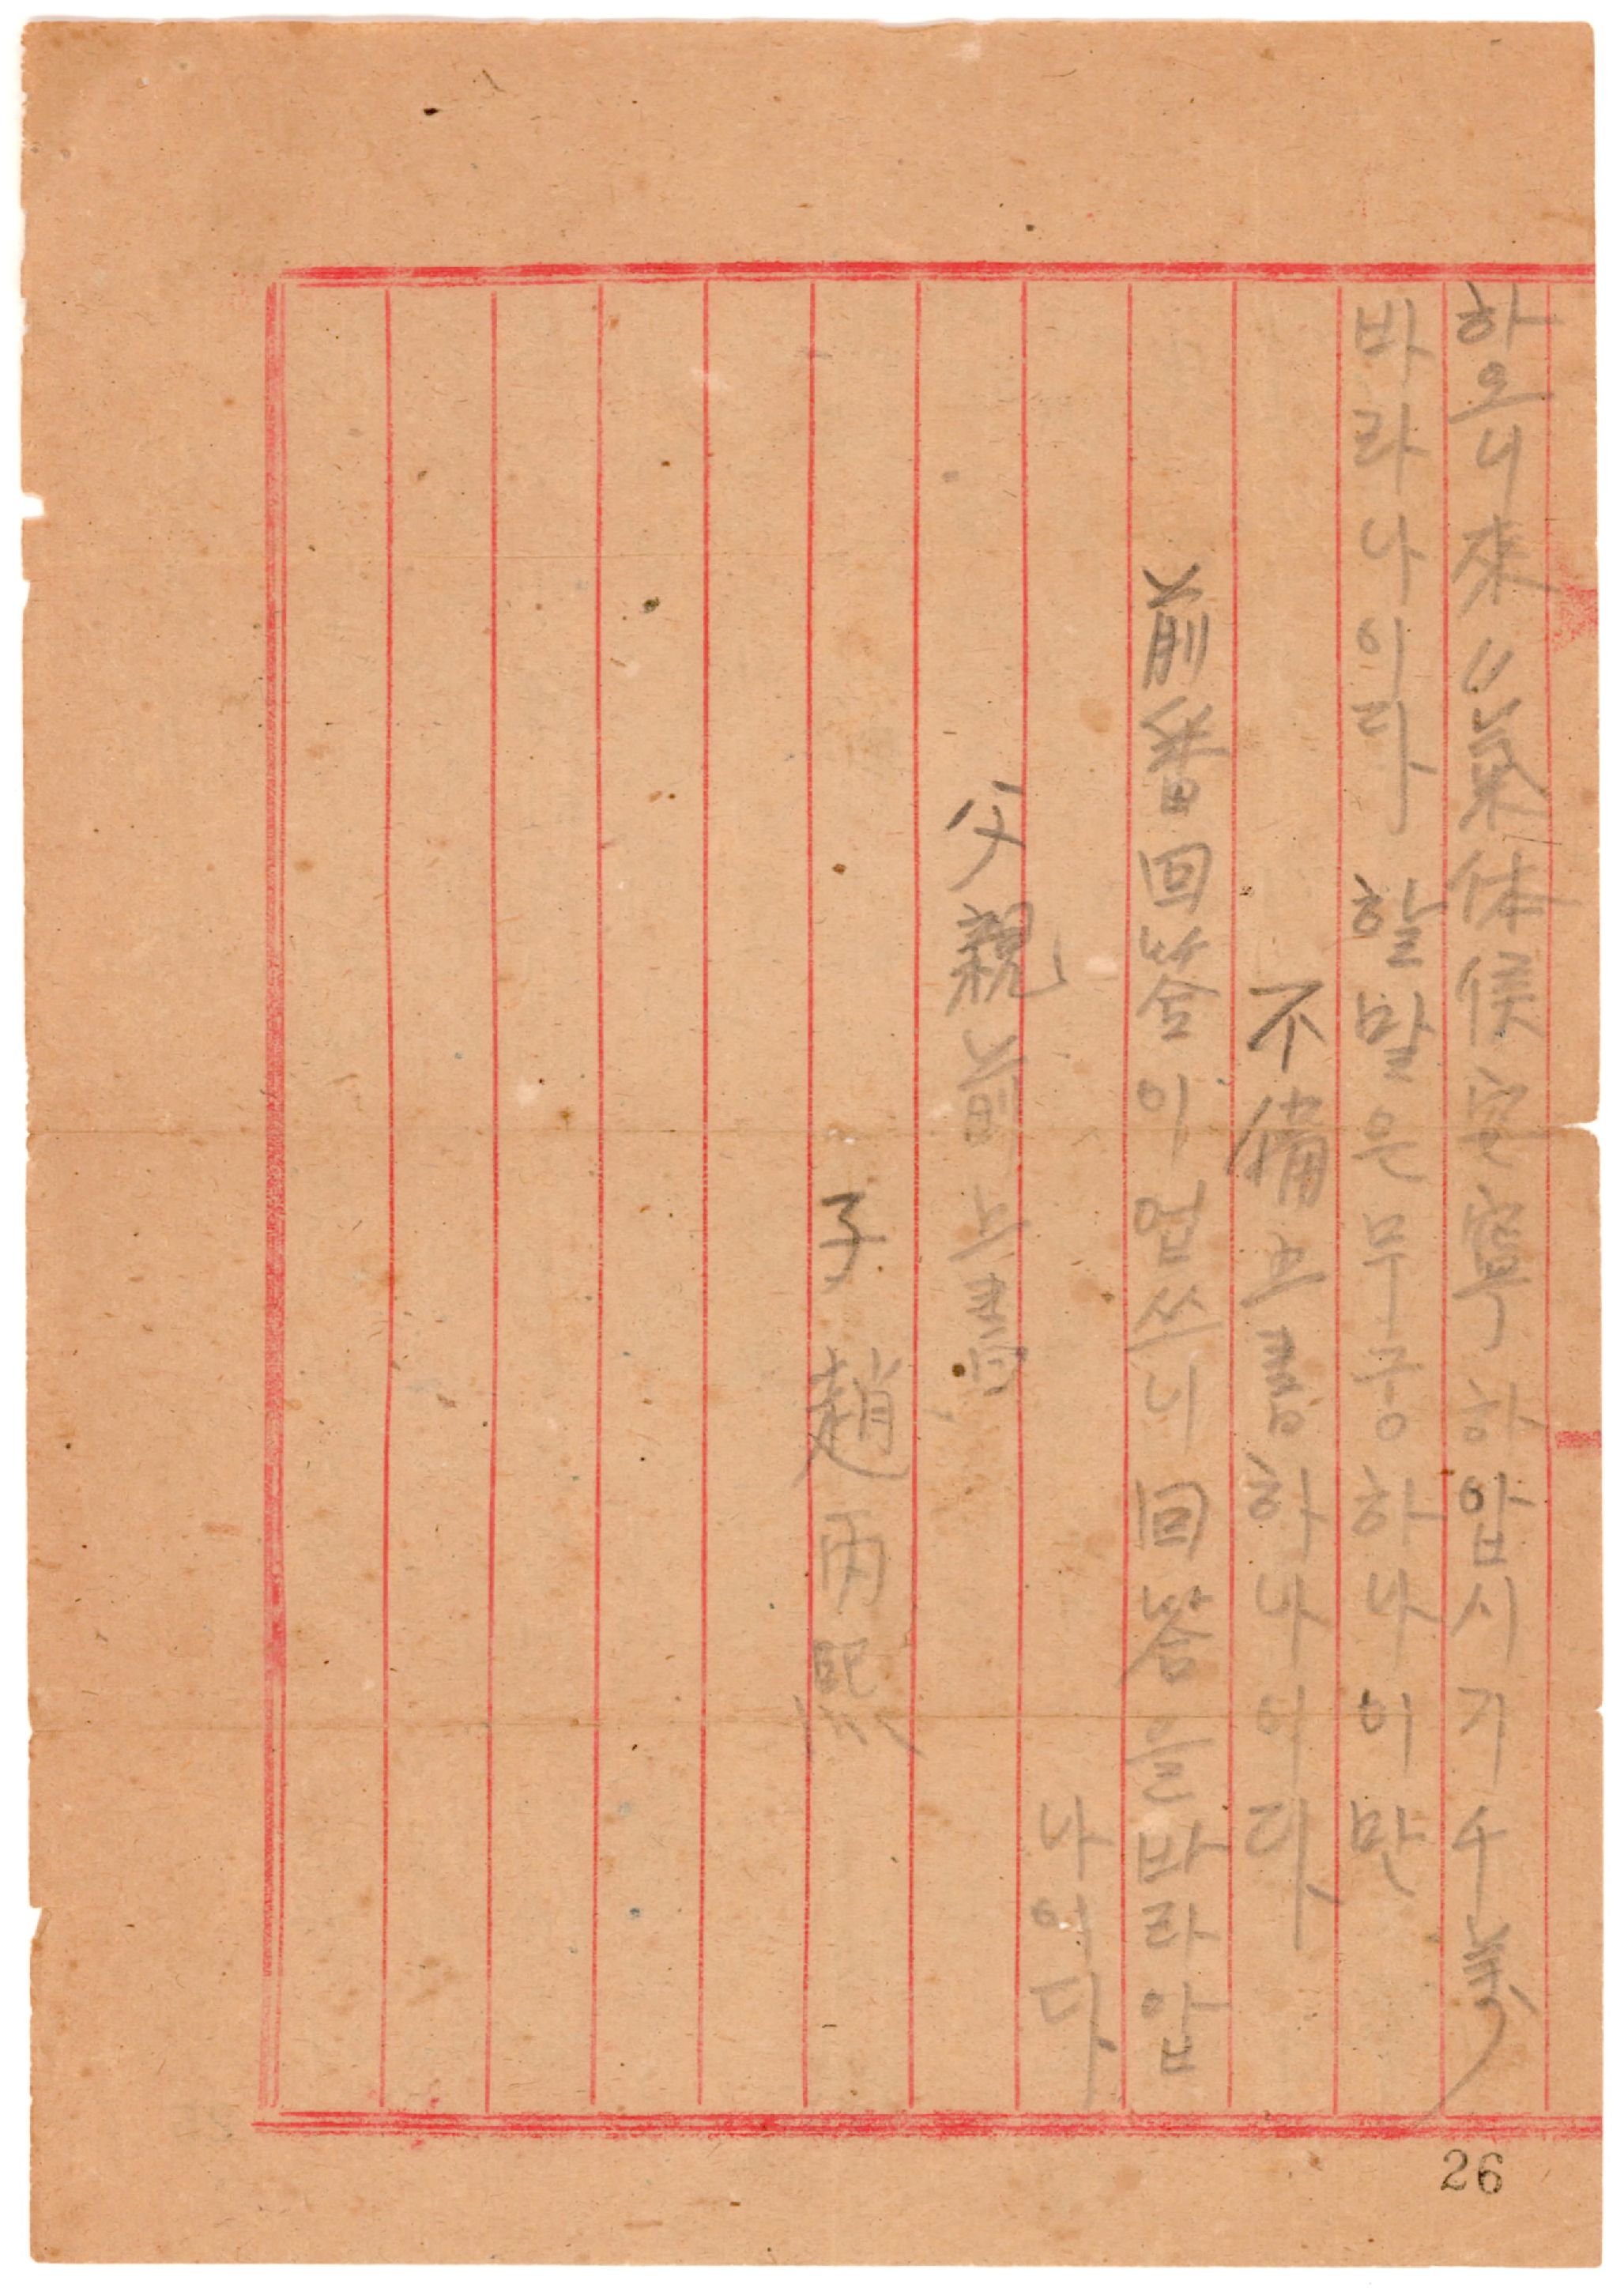 하오니 來〃 氣体候 安寧 하압시기 千萬
바라나이다 할말은 무궁하나이만
不備上書하나이다
前番回答이 업쓰니 回答을 바라압
나이다
父親前上書
子 趙丙熙
26